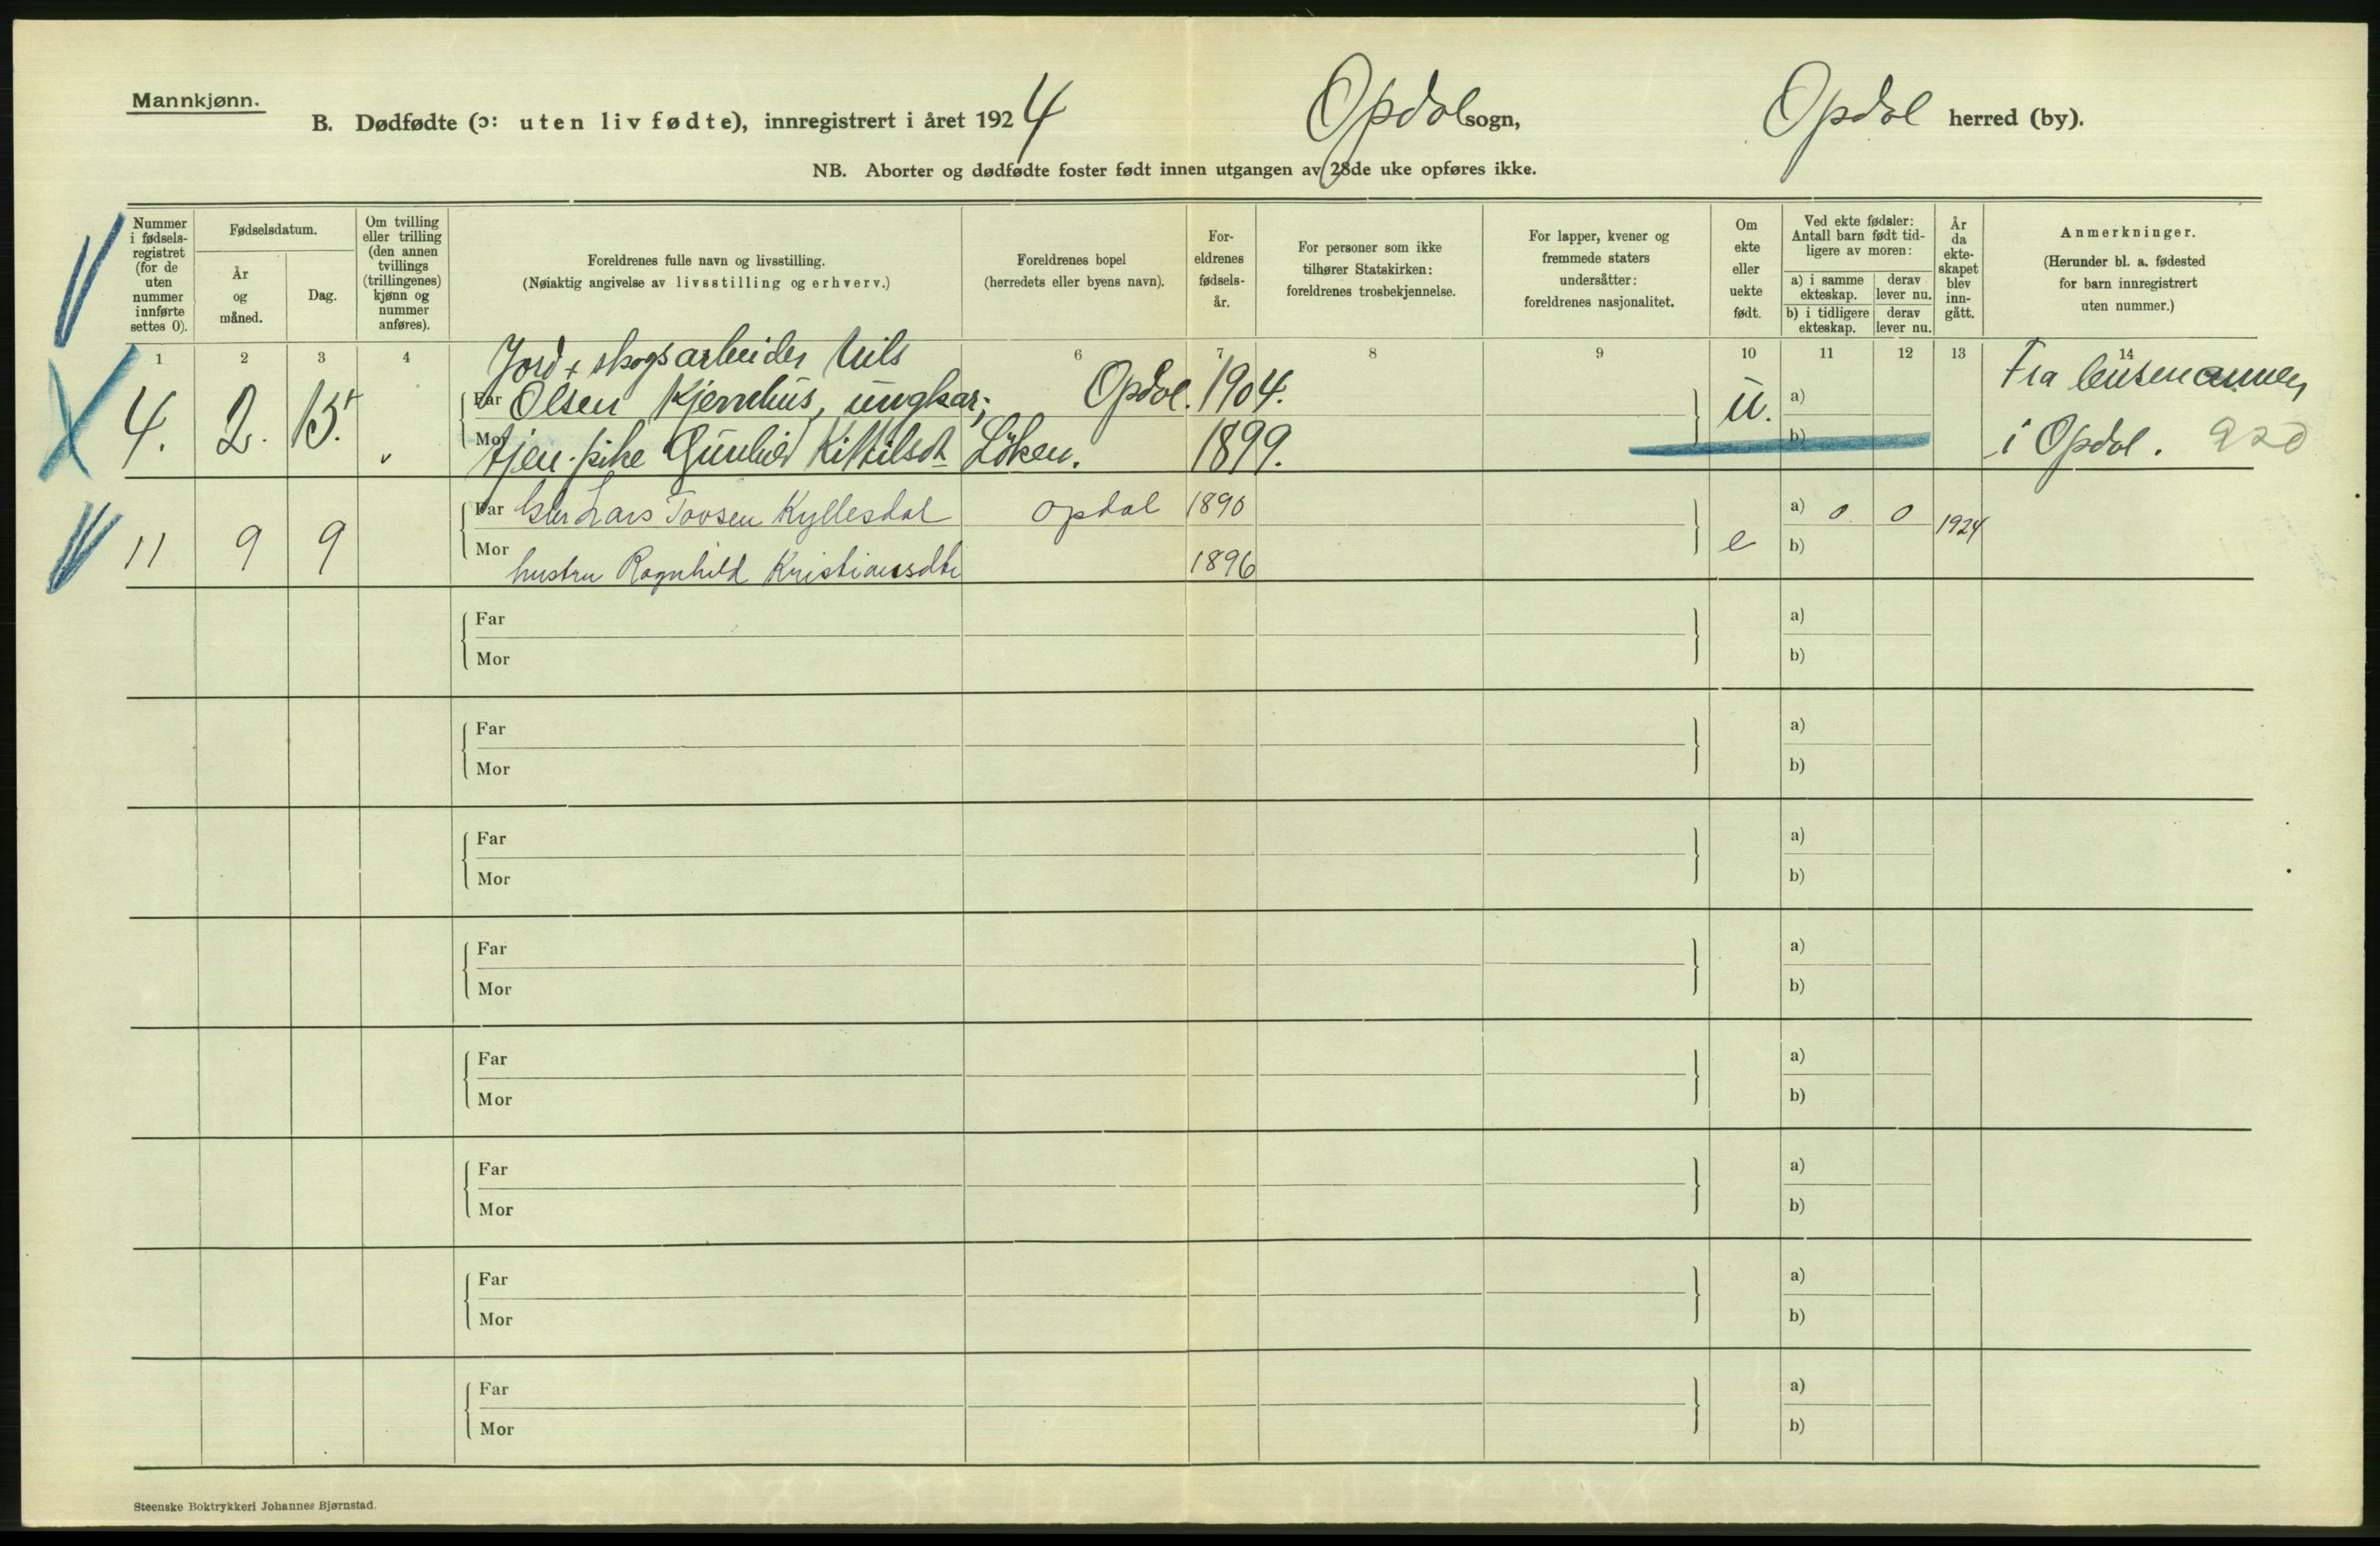 Mannkjønn.
B. Dødfødte (ɔ: uten liv fødte), innregistrert i året 1924 Opdal sogn, Opdal herred (by).
NB. Aborter og dødfødte foster født innen utgangen av 28de uke opføres ikke.
Nummer i fødsels- registret (for de uten nummer innførte settes 0).
Fødselsdatum.
År og måned.
Dag.
Om tvilling eller trilling (den annen tvillings (trillingenes) kjønn og nummer anføres).
Foreldrenes fulle navn og livsstilling.
(Nøiaktig angivelse av livsstilling og erhverv.)
Foreldrenes bopel
(herredets eller byens navn).
For- eldrenes fødsels- år.
For personer som ikke tilhører Statskirken: foreldrenes trosbekjennelse.
For lapper, kvener og fremmede staters undersåtter: foreldrenes nasjonalitet.
Om ekte eller uekte født.
Ved ekte fødsler: Antall barn født tid- ligere av moren:
a) i samme ekteskap. derav lever nu.
b) i tidligere ekteskap. derav lever nu.
År da ekte- skapet blev inn- gått.
Anmerkninger.
(Herunder bl. a. fødested for barn innregistrert uten nummer.)
1 2 3 4 6 7 8 9 10 11 12 13 14
Jord + skogsarbeider Nils Fra lensmannen
4. 2. 15. Far Olsen Kjemhus, ungkar; Opdal. 1904. U. a)
Mor tjen. pike Gunhild Kittilsdt Löken. 1899. b) i Opdal. 220
11 9 9 Far Lars Tovsen Kyllesdal Opdal 1890 e a) 0 0 1924
Mor hustru Ragnhild Kristiansdtr 1896 b)
Far a)
Mor b)
Far a)
Mor b)
Far a)
Mor b)
Far a)
Mor b)
Far a)
Mor b)
Far a)
Mor b)
Far a)
Mor b)
Far a)
Mor b)
Steenske Boktrykkeri Johannes Bjørnstad.